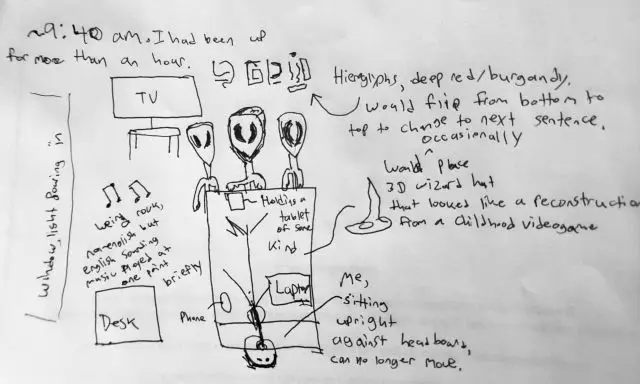 ~9:40 am. I had been up
for more than an hour.
TV
Hieroglyphs, deep red/burgandy.
would flip from bottom to
top to change to next sentence.
occasionally
would place
3D wizard hat
that looked like a reconstruction
from a childhood videogame
Window, light pouring in
weird rock,
non-english but
english sounding
music played at
one point
briefly
Holding a
tablet
of some
kind
Desk
Phone
Laptop
Me,
sitting
upright
against headboard,
can no longer move.